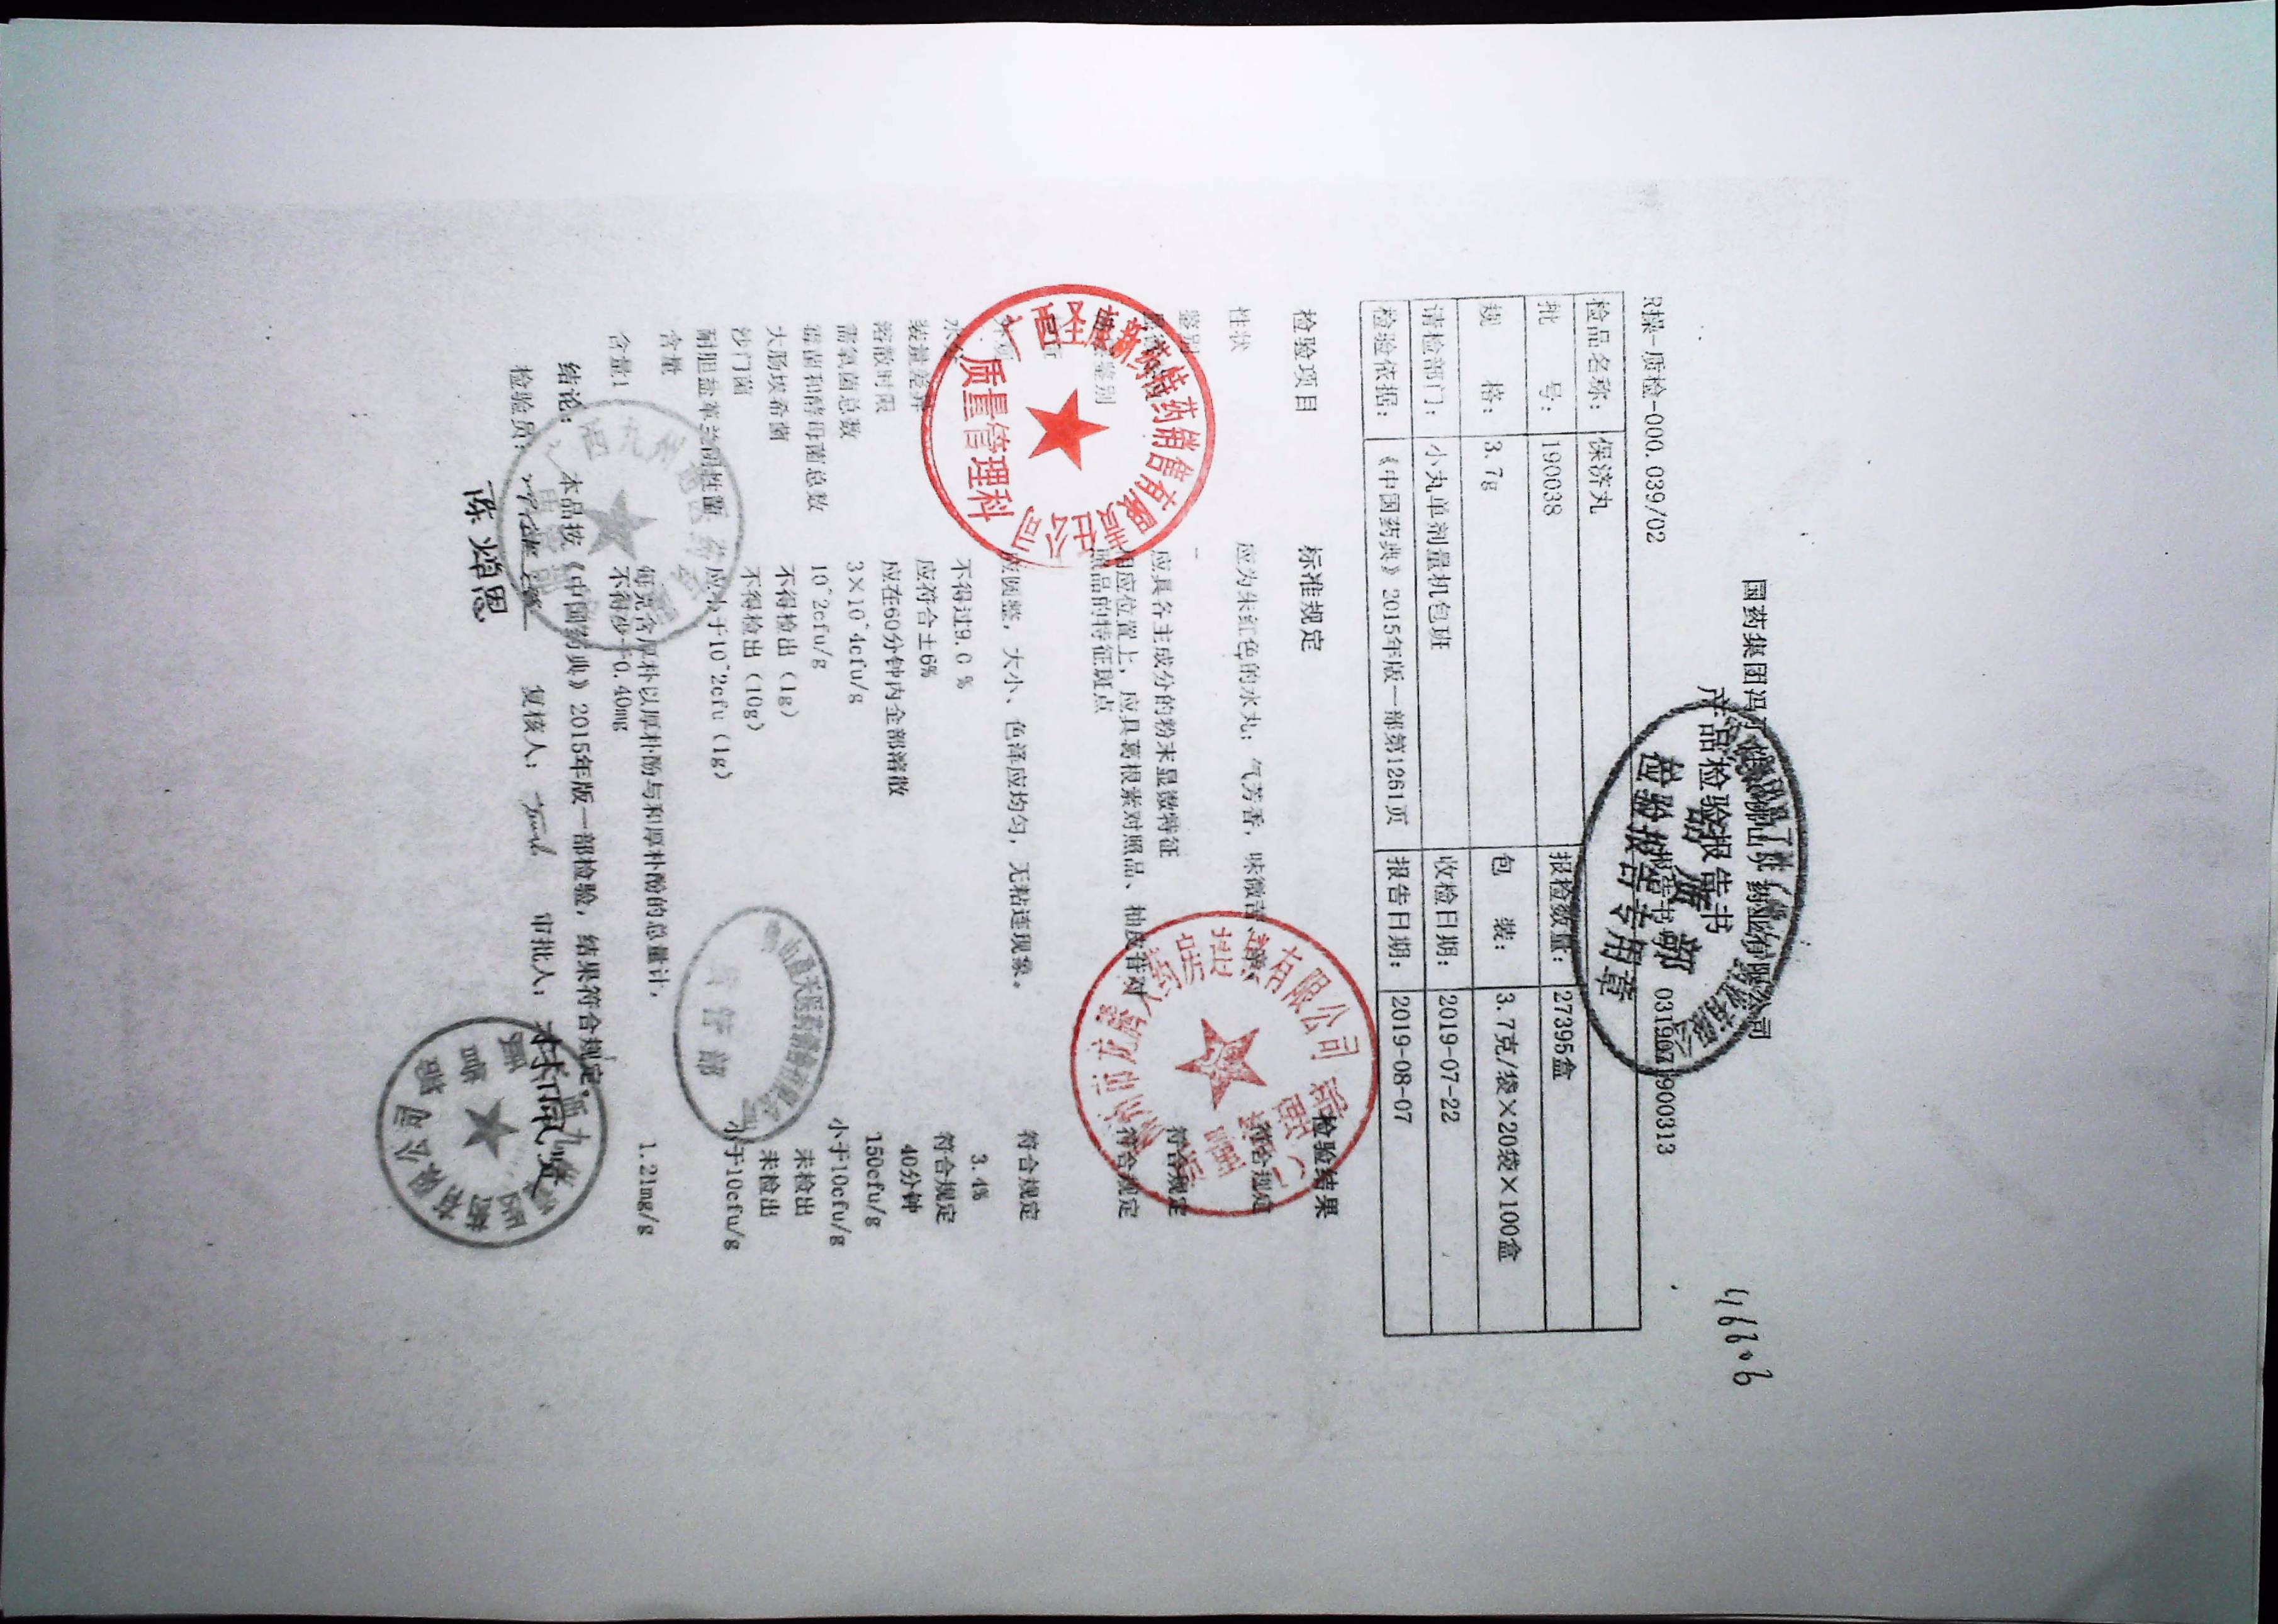 46606
国药集团冯了性(佛山)药业有限公司
产品检验报告书
R操-质检-000.039/02 报告书号: 0319071900313
检品名称: 保济丸
批 号: 190038 报检数量: 27395盒
规 格: 3.7g 包 装: 3.7克/袋×20袋×100盒
请检部门: 小丸单剂量机包班 收检日期: 2019-07-22
检验依据: 《中国药典》2015年版一部第1261页 报告日期: 2019-08-07
检验项目 标准规定 检验结果
性状 应为朱红色的水丸;气芳香,味微苦、辛。 符合规定
鉴别
应具各主成分的粉末显微特征 符合规定
鉴别 相应位置上,应具葛根素对照品、柚皮苷对 符合规定
照品的特征斑点
应圆整,大小、色泽应均匀,无粘连现象。 符合规定
水分 不得过9.0 % 3.4%
装量差异 应符合±6% 符合规定
溶散时限 应在60分钟内全部溶散 40分钟
需氧菌总数 3×10^4cfu/g 150cfu/g
霉菌和酵母菌总数 10^2cfu/g 小于10cfu/g
大肠埃希菌 不得检出(1g) 未检出
沙门菌 不得检出(10g) 未检出
耐胆盐革兰阴性菌 应小于10^2cfu(1g) 小于10cfu/g
含量
含量1 每克含厚朴以厚朴酚与和厚朴酚的总量计, 1.21mg/g
不得少于0.40mg
结论: 本品按《中国药典》2015年版一部检验,结果符合规定。
检验员: 复核人: 审批人:
陈焯恩
检验报告专用章
广西圣康新特药销售有限责任公司
质量管理科